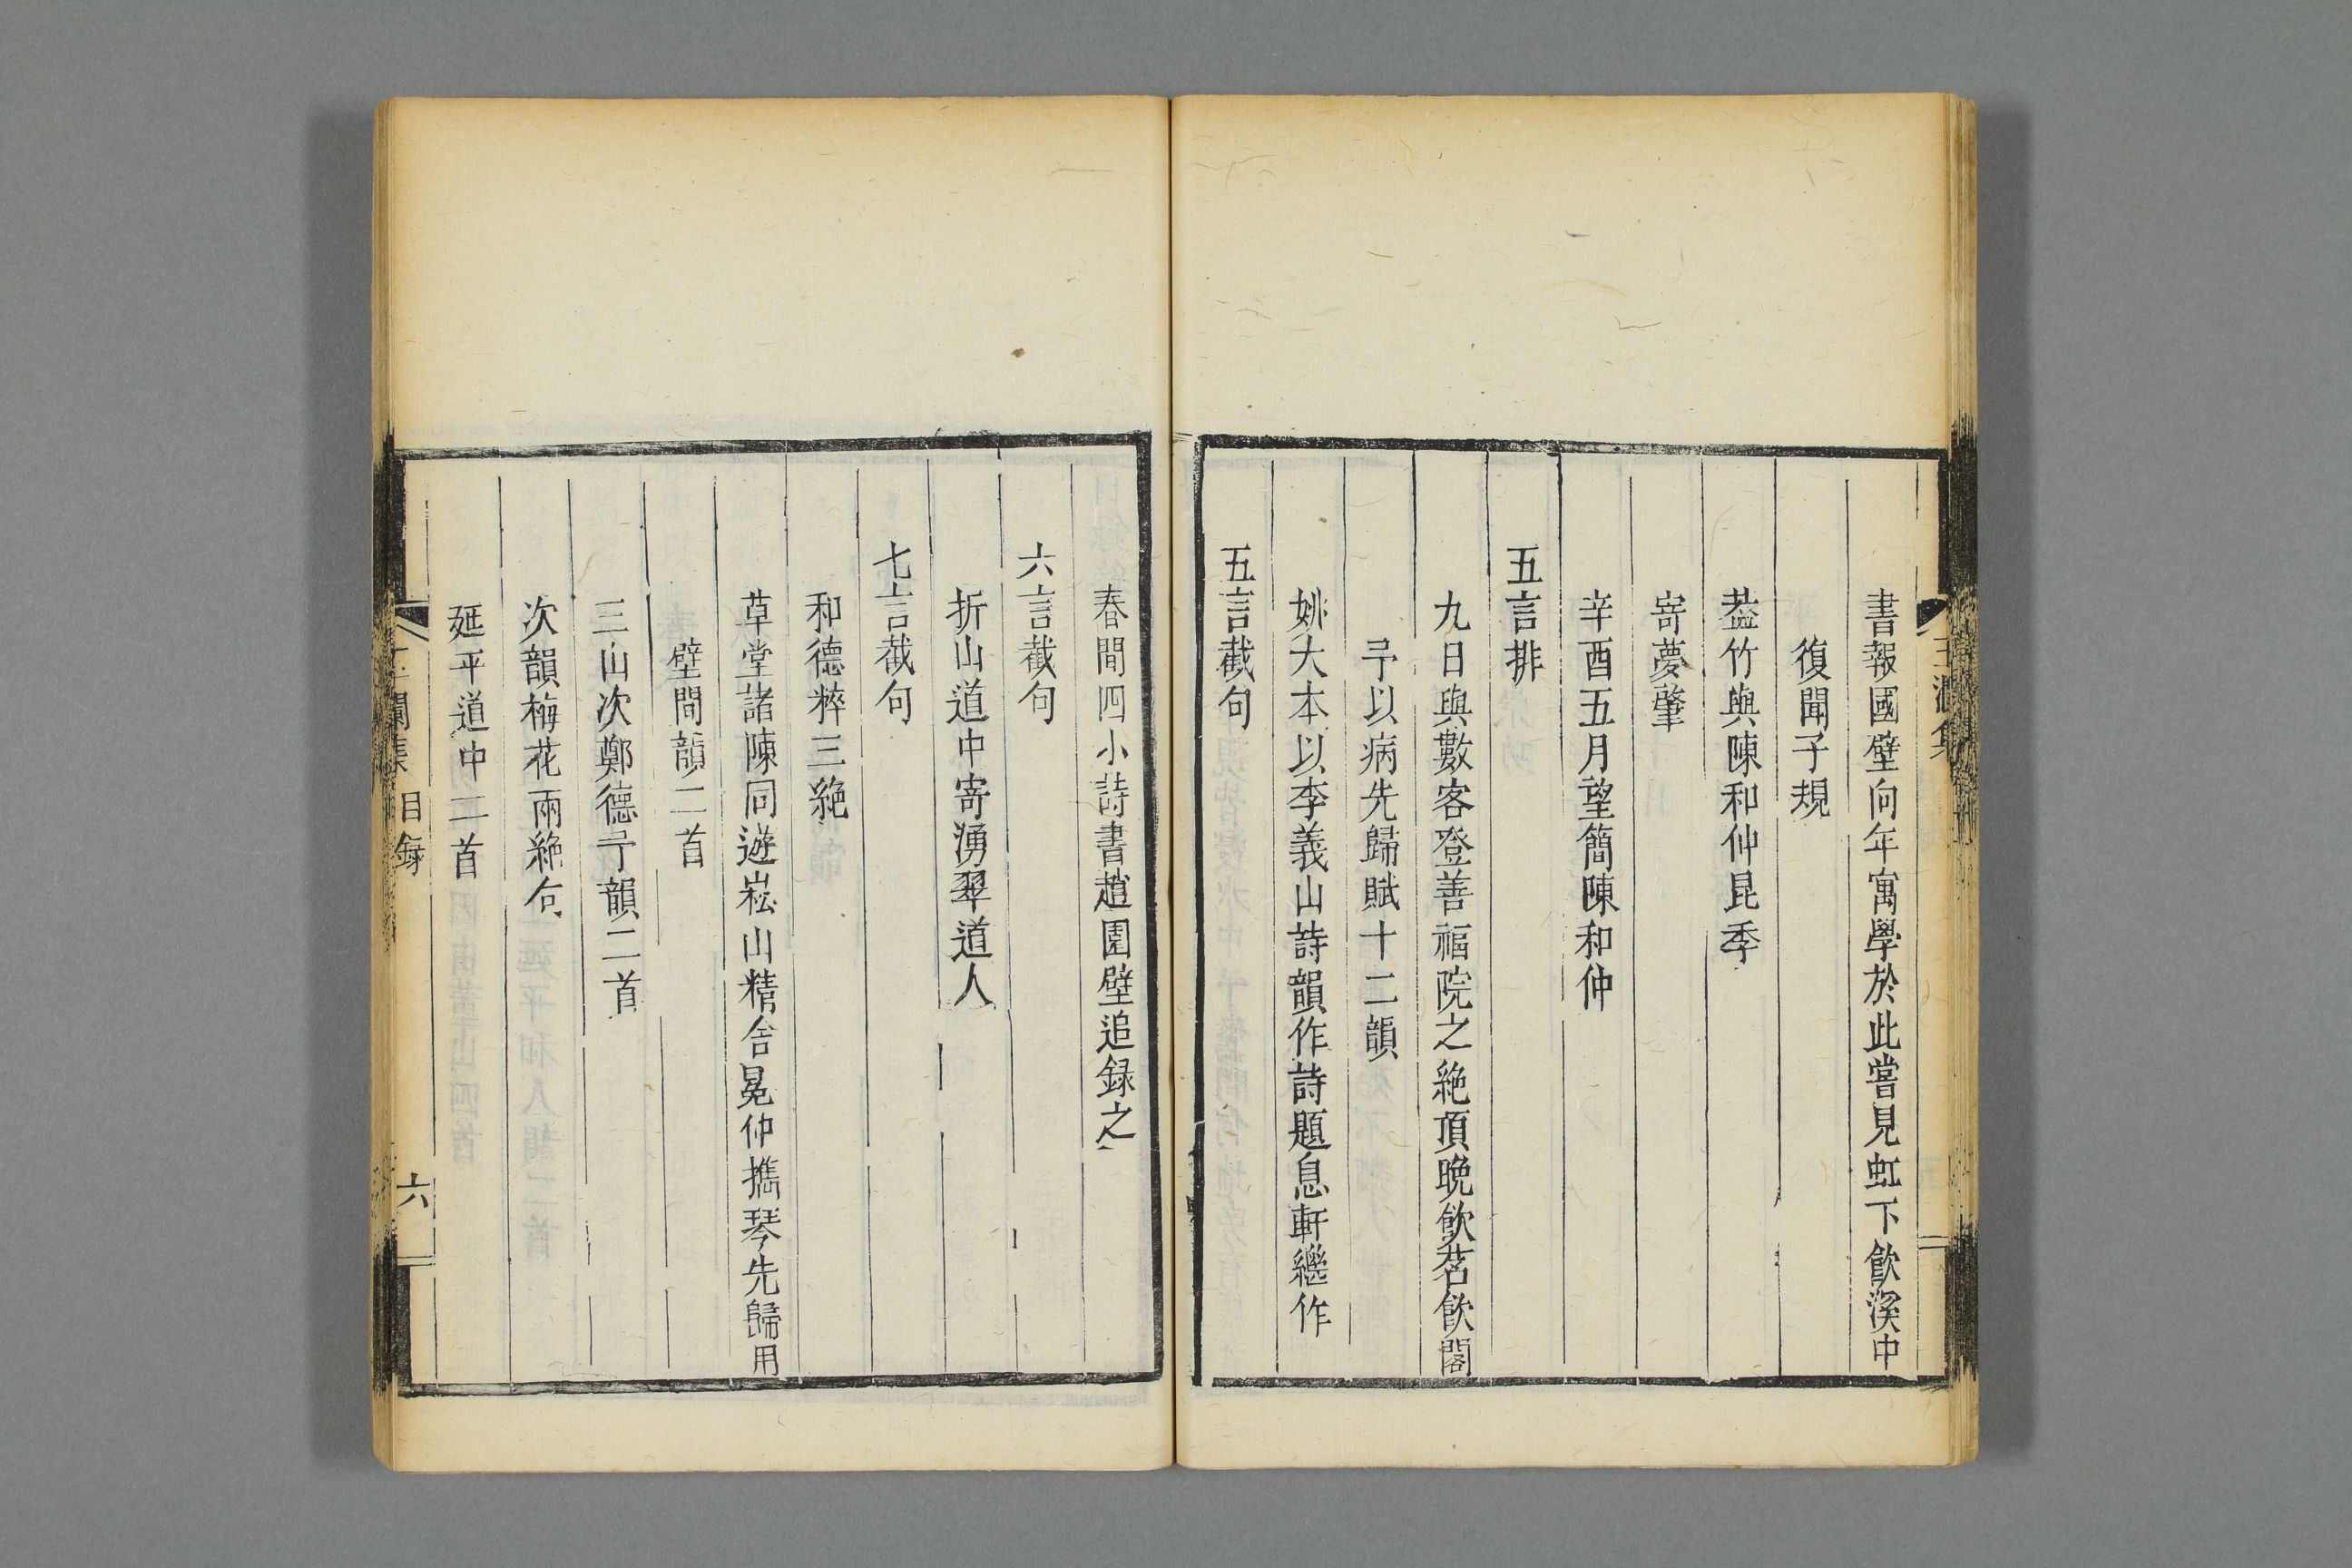 書報國壁向年寓學於此嘗見虹下飲溪中
復聞子規
葢竹與陳和仲昆季
寄夢肇
辛酉五月望簡陳和仲
五言排
九日與數客登善福院之絶頂晩飲茗飲閣
予以病先歸賦十二韻
姚大本以李義山詩韻作詩題息軒繼作
五言截句
春間四小詩書趙園壁追録之
六言截句
折山道中寄湧翠道人
七言截句
和德粹三絶
草堂諸陳同遊崧山精舍晃仲攜琴先歸用
壁間韻二首
三山次鄭德予韻二首
次韻梅花兩絶句
延平道中二首
目録
六